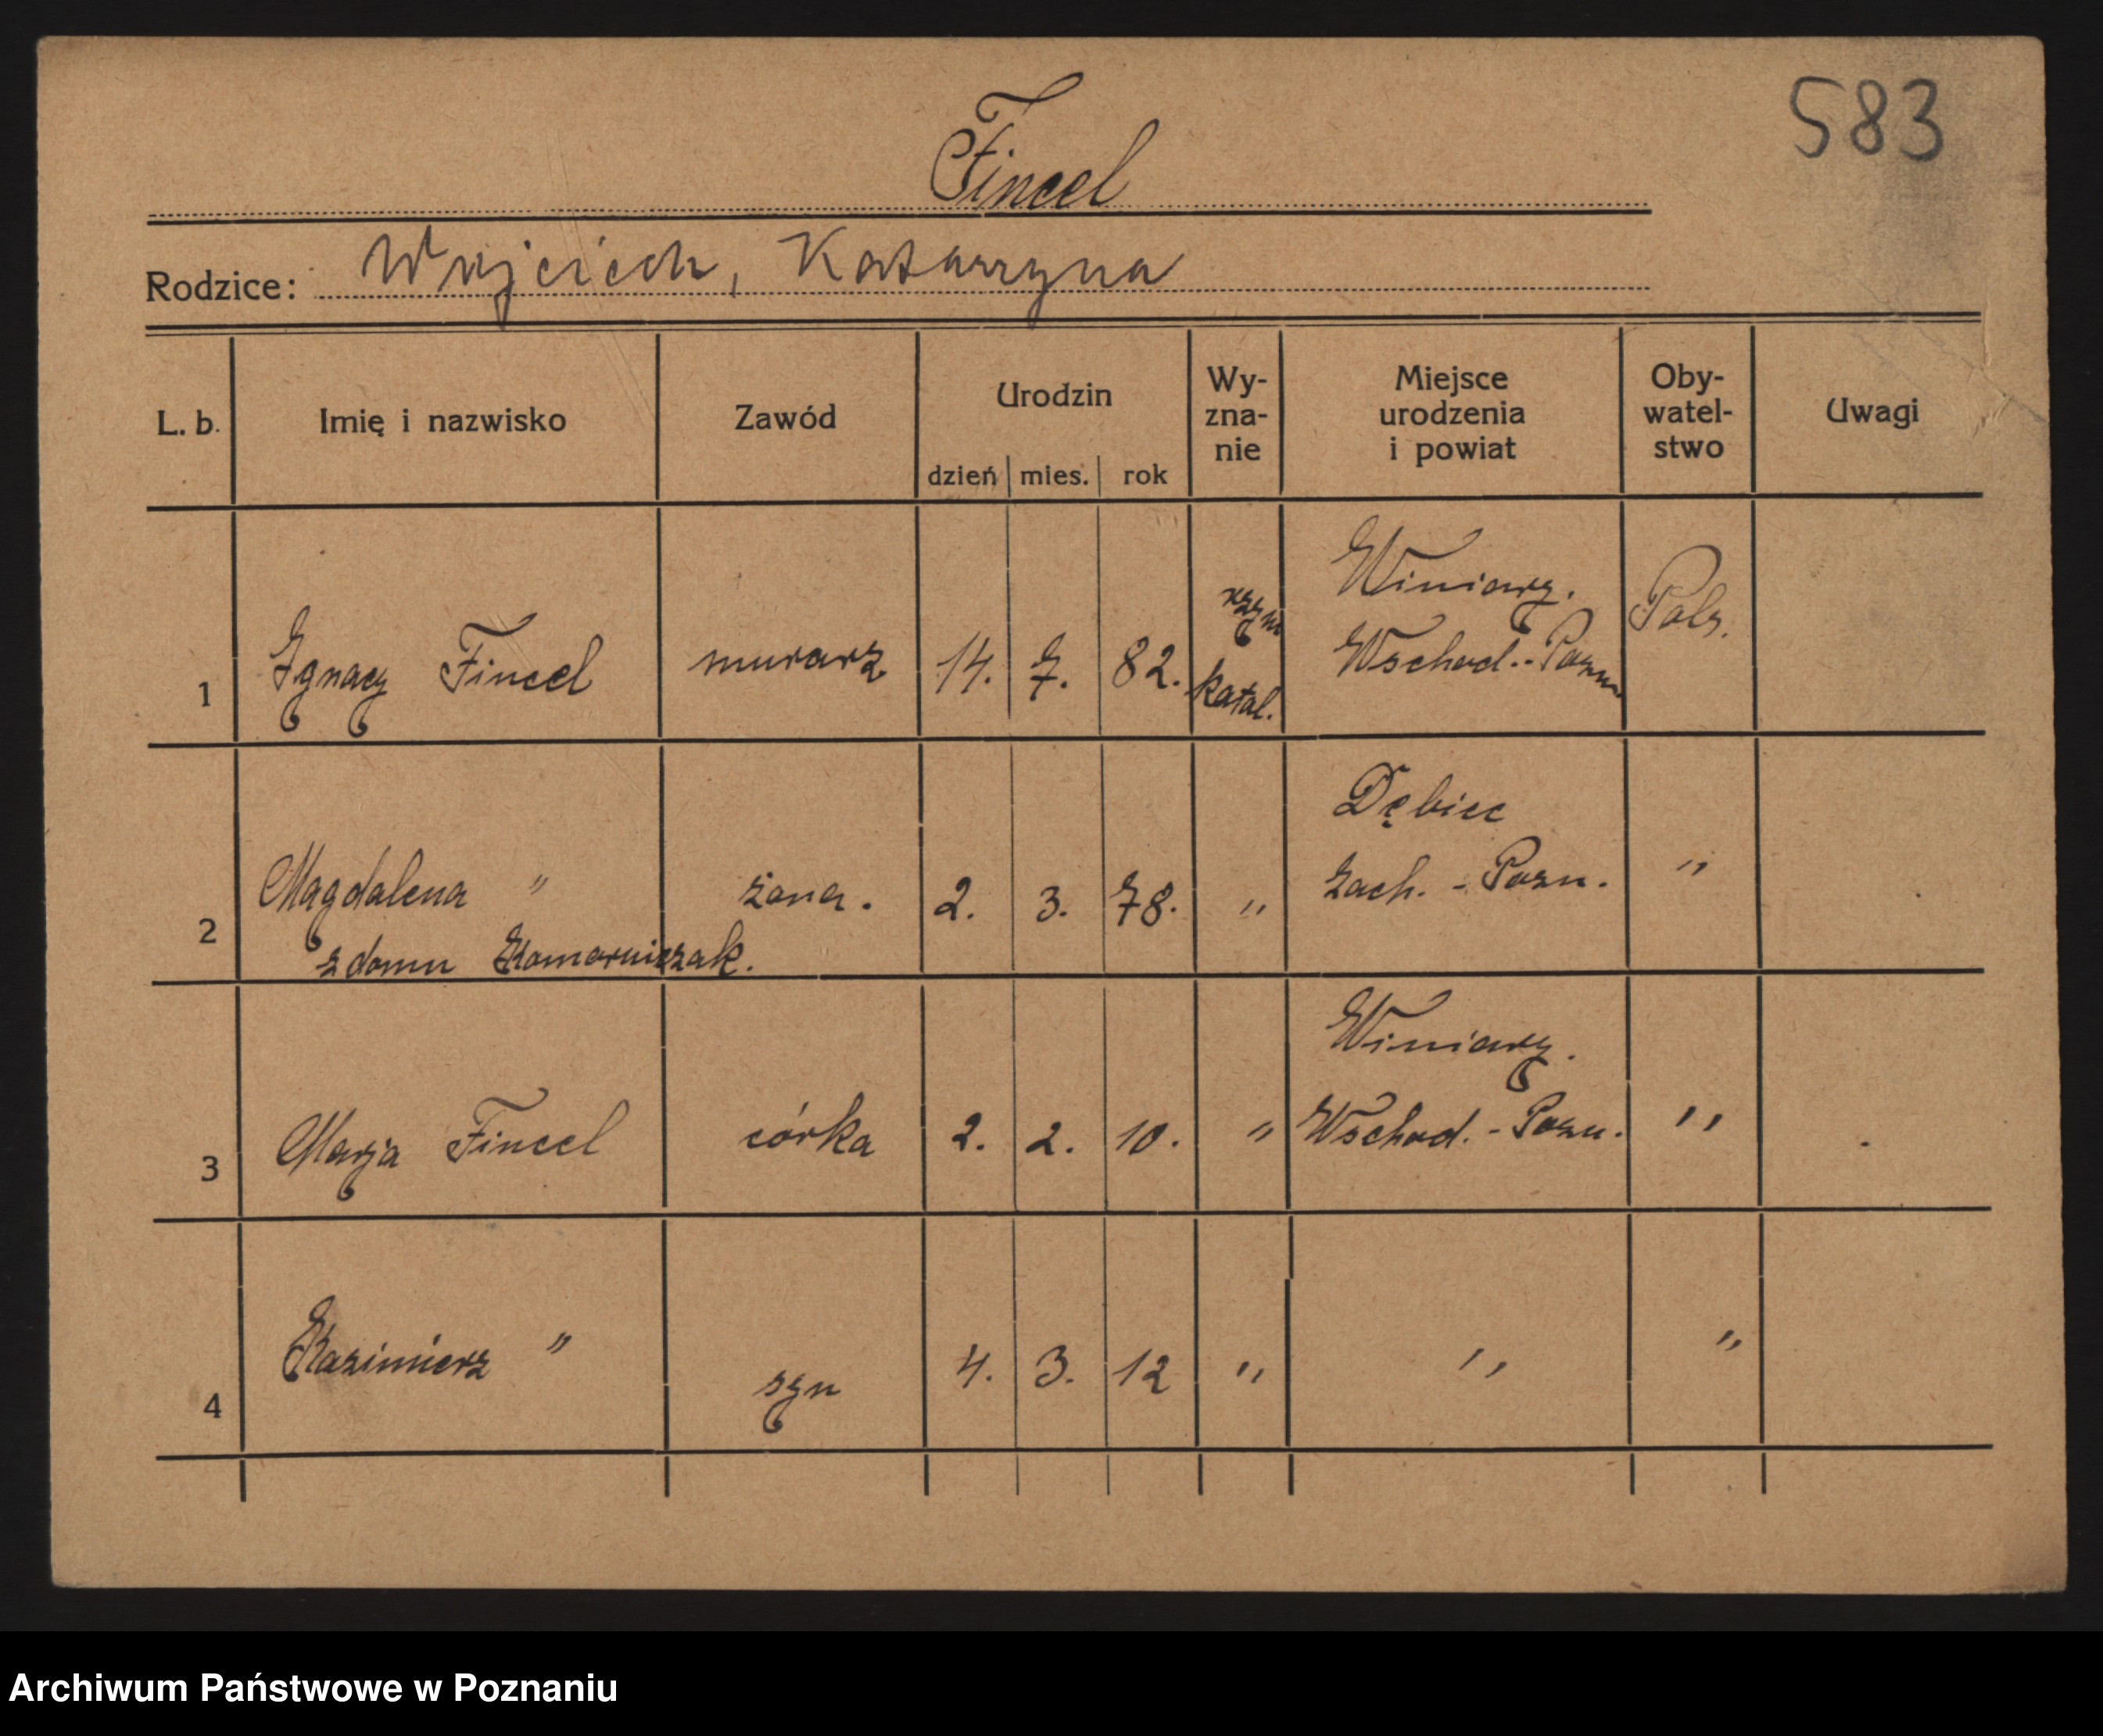 583
Fincel
Rodzice: Wojciech, Katarzyna
L. b. Imię i nazwisko Zawód Urodzin dzień mies. rok Wy-zna-nie Miejsce urodzenia i powiat Oby-watel-stwo Uwagi
Winiary.
rzym
1 Ignacy Fincel murarz 14. 7. 82. katol. Wschod.-Pozn. Pols.
Dębiec
2 Magdalena " żona. 2. 3. 78. " Zach. - Pozn. "
z domu Komorniczak.
Winiary.
3 Marja Fincel córka 2. 2. 10. " Wschod. - Pozn. "
4 Kazimierz " syn 4. 3. 12 " " "
Archiwum Państwowe w Poznaniu